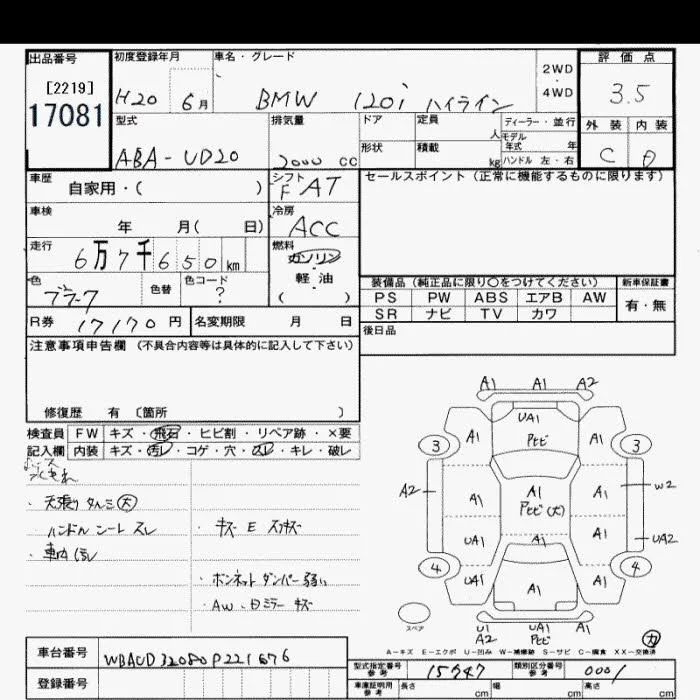 出品番号 初度登録年月 車名・グレード 2WD・4WD 評価点
[2219] H20 6月 BMW 120i ハイライン 3.5
17081 型式 排気量 ドア 定員 人 ディーラー・並行 外装 内装
ABA-UD20 2000 cc 形状 積載 kg モデル年式 年 C D
ハンドル 左・右
車歴 自家用・( ) シフト F AT セールスポイント(正常に機能するものに限ります)
車検 年 月( 日) 冷房 ACC
走行 6万7千650km 燃料 ガソリン・軽油
( )
色 ブラック 色替 色コード ? 装備品(純正品に限り○をつけてください) 新車保証書
PS PW ABS エアB AW 有・無
SR ナビ TV カワ
R券 17170円 名変期限 月 日 後日品
注意事項申告欄(不具合内容等は具体的に記入して下さい)
修復歴 有〔箇所 〕
検査員 FW キズ・飛石・ヒビ割・リペア跡・×要
記入欄 内装 キズ・汚レ・コゲ・穴・スレ・キレ・破レ
・天張り タルミ(大)
・ハンドル シート スレ ・キズ E
・車内 汚レ
・ボンネット ダンパー 弱い
・AW、ミラー キズ
A1 A1 A2
UA1
3 A1 Pキビ A1 3
A2 A1 A1 A1 W2
Pキビ(大)
UA1 A1 A1 UA2
4 UA1 A1 A1 4
スペア U1 UA1 A1
A2 Pキビ
A-キズ E-エクボ U-凹み W-補修跡 S-サビ C-腐食 XX-交換済
車台番号 WBAUD32080P221676 型式指定番号 参考 15947 類別区分番号 参考 0001
登録番号 車庫証明用 参考 長さ cm 幅 cm 高さ cm